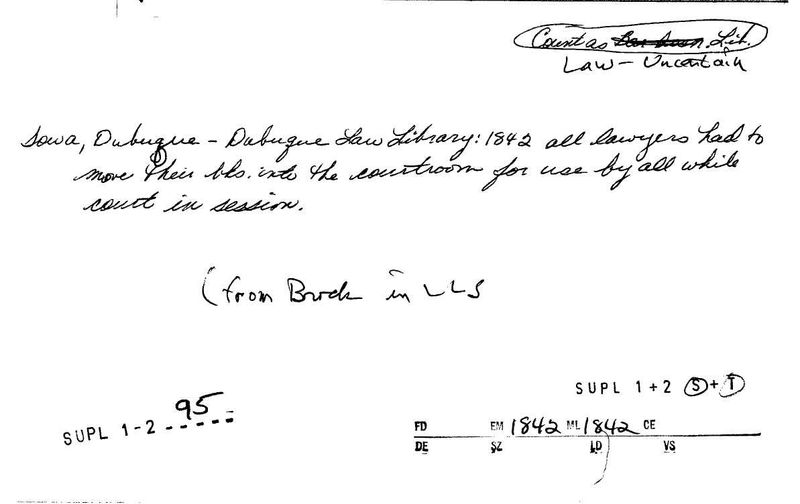 Count as Lib.
Law - Uncertain
Iowa, Dubuque - Dubuque Law Library: 1842 all lawyers had to
move their bks. into the courtroom for use by all while
court in session.
(from in LLS
SUPL 1+2 S+T
SUPL 1-2 95
FD EM 1842 ML 1842 CE
DE SZ LD VS